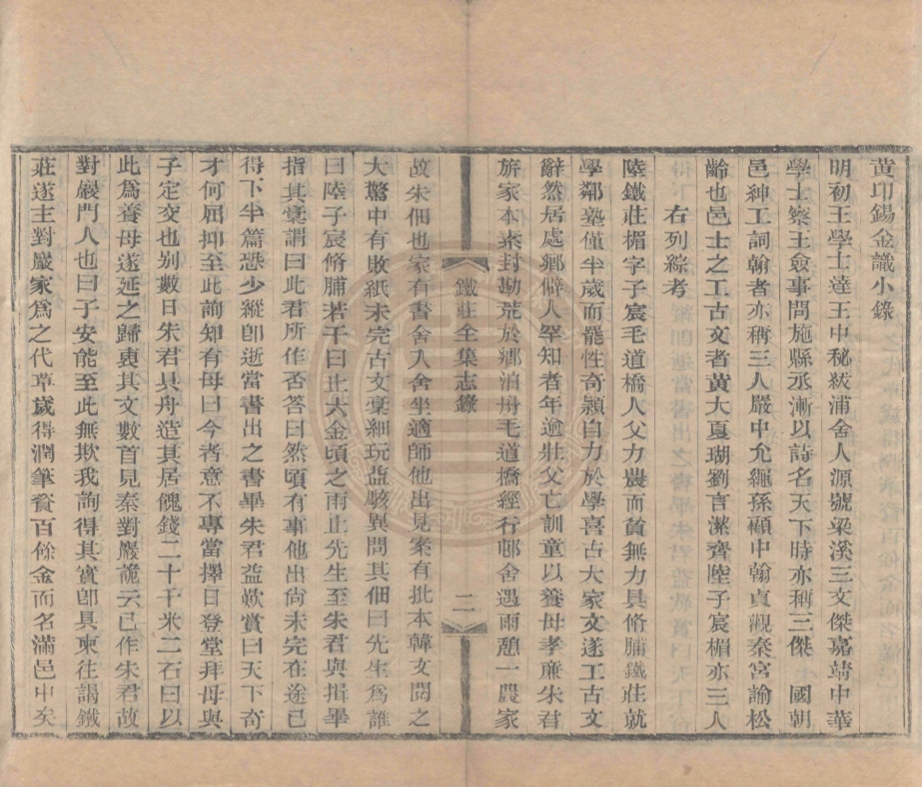 黄印錫金識小錄
明初王學士達王中秘紱浦舍人源號梁溪三文傑嘉靖中華
學士察王僉事問施縣丞漸以詩名天下時亦稱三傑　國朝
邑紳工詞翰者亦稱三人嚴中允繩孫顧中翰貞觀秦宮諭松
齡也邑士之工古文者黄大夏瑚劉言潔齊陸子宸楣亦三人
右列綜考
陸鐵莊楣字子宸毛道橋人父力農而貧無力具脩脯鐵莊就
學鄰塾僅半歲而罷性奇穎自力於學喜古大家文遂工古文
辭然居處鄉僻人罕知者年逾壯父亡訓童以養母孝廉朱君
旂家本素封勘荒於鄉泊舟毛道橋經行邨舍遇雨憩一農家
鐵莊全集志錄
二
故朱佃也家有書舍入舍坐適師他出見案有批本韓文閱之
大驚中有敗紙未完古文稾細玩益駭異問其佃曰先生爲誰
曰陸子宸脩脯若干曰止六金頃之雨止先生至朱君與揖畢
指其稾謂曰此君所作否答曰然頃有事他出尙未完在途已
得下半篇恐少縱卽逝當書出之書畢朱君益歎賞曰天下奇
才何屈抑至此詢知有母曰今者意不專當擇日登堂拜母與
子定交也别數日朱君具舟造其居餽錢二十千米二石曰以
此爲養母遂延之歸衷其文數首見秦對巖詭云已作朱君故
對巖門人也曰子安能至此無欺我詢得其實卽具柬往謁鐵
莊遂主對巖家爲之代草歲得潤筆資百餘金而名滿邑中矣